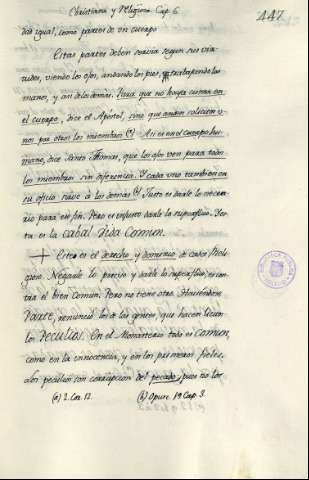 Christiana y Religiosa Cap. 6
447
dad igual, como partes de un cuerpo
Estas partes deben servir segun sus vir-
tudes, viendo los ojos, andando los pies, trabajando las
manos, y asi de los demás. Para que no haya cisma en
el cuerpo, dice el Apóstol, sino que anden solicitos u-
nos por otros los miembros (a) Asi es en el cuerpo hu-
mano, dice Santo Thomas, que los ojos ven para todos
los miembros sin diferencia. Y cada uno tambien en
su oficio sirve á los demás (b) Justo es darle lo necesa-
rio para su fin. Pero es injusto darle lo superfluo. Es-
ta es la cabal Vida Comun.
Este es el derecho y dominio de cada Reli-
gioso. Negarle lo preciso y darle lo superfluo, es con-
tra el bien Comun. Pero no tiene otro. Haciéndose
Parte, renunció los de las gentes, que hacen licitos
los Peculios. En el Monasterio todo es Comun,
como en la innocencia, y en los primeros fieles.
Los peculios son corrupcion del pecado, pues no los
(a) 1. Cor. 12. (b) Opusc. 19 Cap. 3.